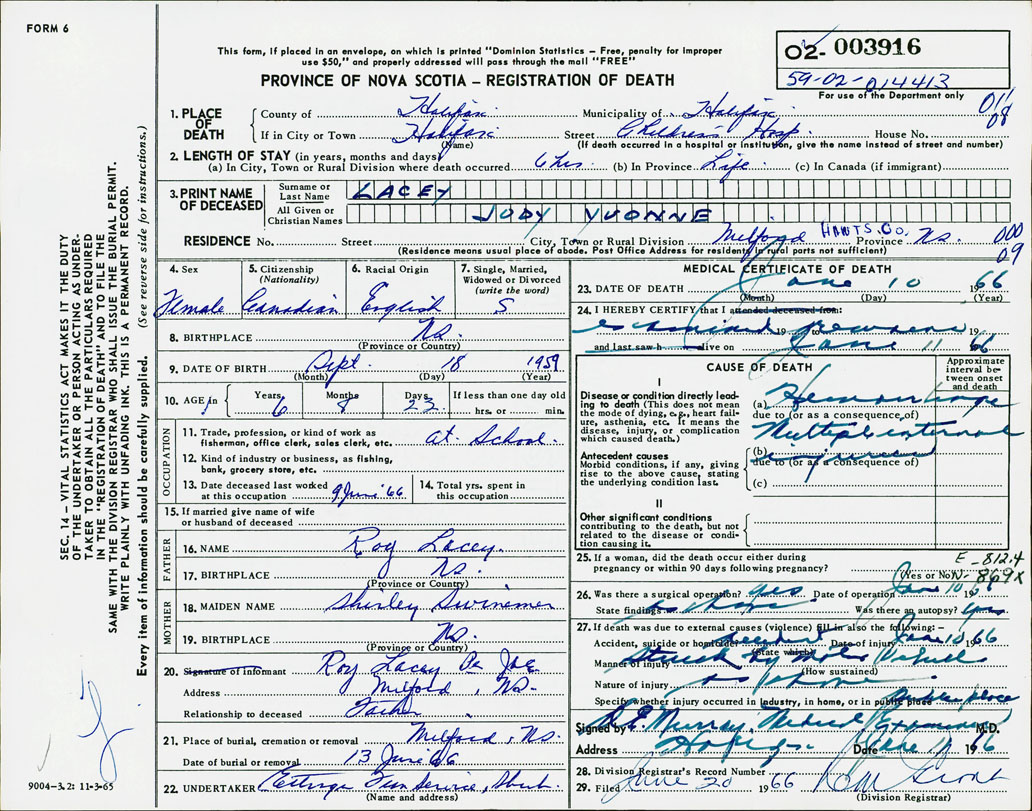 FORM 6
This form, if placed in an envelope, on which is printed "Dominion Statistics - Free, penalty for improper
use $50," and properly addressed will pass through the mail "FREE"
PROVINCE OF NOVA SCOTIA - REGISTRATION OF DEATH
02- 003916
59-02-014413
For use of the Department only
011
08
1. PLACE OF DEATH
County of Halifax Municipality of Halifax
If in City or Town Halifax Street Children's Hosp. House No.
(Name) (If death occurred in a hospital or institution, give the name instead of street and number)
2. LENGTH OF STAY (in years, months and days)
(a) In City, Town or Rural Division where death occurred 6 hrs. (b) In Province Life (c) In Canada (if immigrant)
3. PRINT NAME OF DECEASED
Surname or Last Name LACEY
All Given or Christian Names JUDY YVONNE
RESIDENCE No. Street City, Town or Rural Division Milford HANTS. CO. Province NS. 000
(Residence means usual place of abode. Post Office Address for residents in rural parts not sufficient) 09
4. Sex Female
5. Citizenship (Nationality) Canadian
6. Racial Origin English
7. Single, Married, Widowed or Divorced (write the word) S
8. BIRTHPLACE NS.
(Province or Country)
9. DATE OF BIRTH Sept. 18 1959
(Month) (Day) (Year)
10. AGE Years 6 Months 8 Days 23 If less than one day old
hrs. or min.
OCCUPATION
11. Trade, profession, or kind of work as
fisherman, office clerk, sales clerk, etc. at School.
12. Kind of industry or business, as fishing,
bank, grocery store, etc.
13. Date deceased last worked
at this occupation 9 June '66
14. Total yrs. spent in
this occupation
15. If married give name of wife
or husband of deceased
FATHER
16. NAME Roy Lacey.
17. BIRTHPLACE NS.
(Province or Country)
MOTHER
18. MAIDEN NAME Shirley Swinemer
19. BIRTHPLACE NS.
(Province or Country)
20. Signature of informant Roy Lacey Per
Address Milford, NS.
Relationship to deceased Father
21. Place of burial, cremation or removal Milford, NS.
Date of burial or removal 13 June 66
22. UNDERTAKER Ettinger Fun Service,
(Name and address)
MEDICAL CERTIFICATE OF DEATH
23. DATE OF DEATH June 10 1966
(Month) (Day) (Year)
24. I HEREBY CERTIFY that I attended deceased from:
examined 19 to 19
and last saw h alive on June 11 66
CAUSE OF DEATH
Approximate interval between onset and death
I
Disease or condition directly leading to death (This does not mean the mode of dying, e.g., heart failure, asthenia, etc. It means the disease, injury, or complication which caused death.)
(a) Hemorrhage
due to (or as a consequence of)
Multiple internal
Antecedent causes
Morbid conditions, if any, giving rise to the above cause, stating the underlying condition last.
(b) injuries
due to (or as a consequence of)
(c)
II
Other significant conditions
contributing to the death, but not related to the disease or condition causing it.
25. If a woman, did the death occur either during
pregnancy or within 90 days following pregnancy? (Yes or No)
E-812.4
N-869X
26. Was there a surgical operation? yes Date of operation June 10 1966
State findings as above Was there an autopsy? yes
27. If death was due to external causes (violence) fill in also the following: -
Accident, suicide or homicide? accident Date of injury June 10 1966
(State which)
Manner of injury struck by motor vehicle
(How sustained)
Nature of injury as above
Specify whether injury occurred in industry, in home, or in public place public place
Signed by Murray, Medical Examiner M.D.
Address Halifax Date June 11 1966
28. Division Registrar's Record Number
29. Filed June 20 1966
(Division Registrar)
SEC. 14 - VITAL STATISTICS ACT MAKES IT THE DUTY
OF THE UNDERTAKER OR PERSON ACTING AS UNDER-
TAKER TO OBTAIN ALL THE PARTICULARS REQUIRED
IN THE "REGISTRATION OF DEATH" AND TO FILE THE
SAME WITH THE DIVISION REGISTRAR WHO SHALL ISSUE THE BURIAL PERMIT.
WRITE PLAINLY WITH UNFADING INK. THIS IS A PERMANENT RECORD.
Every item of information should be carefully supplied. (See reverse side for instructions.)
9004-3.2: 11-3-65